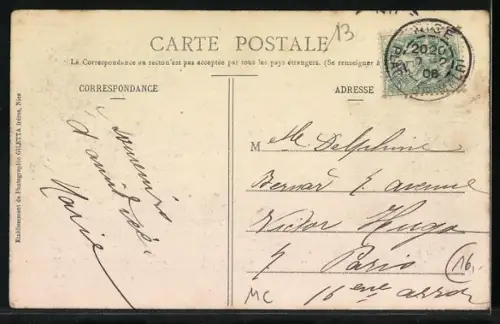 13
CARTE POSTALE
La Correspondance au recto n'est pas acceptée par tous les pays étrangers. (Se renseigner à
CORRESPONDANCE
ADRESSE
Souvenirs
d'amitiés
Marie
Mlle Delphine
Bernard avenue
Victor Hugo
Paris
16
16ème arron
MC
Etablissement de Photographie GILETTA frères, Nice
NICE
20
08